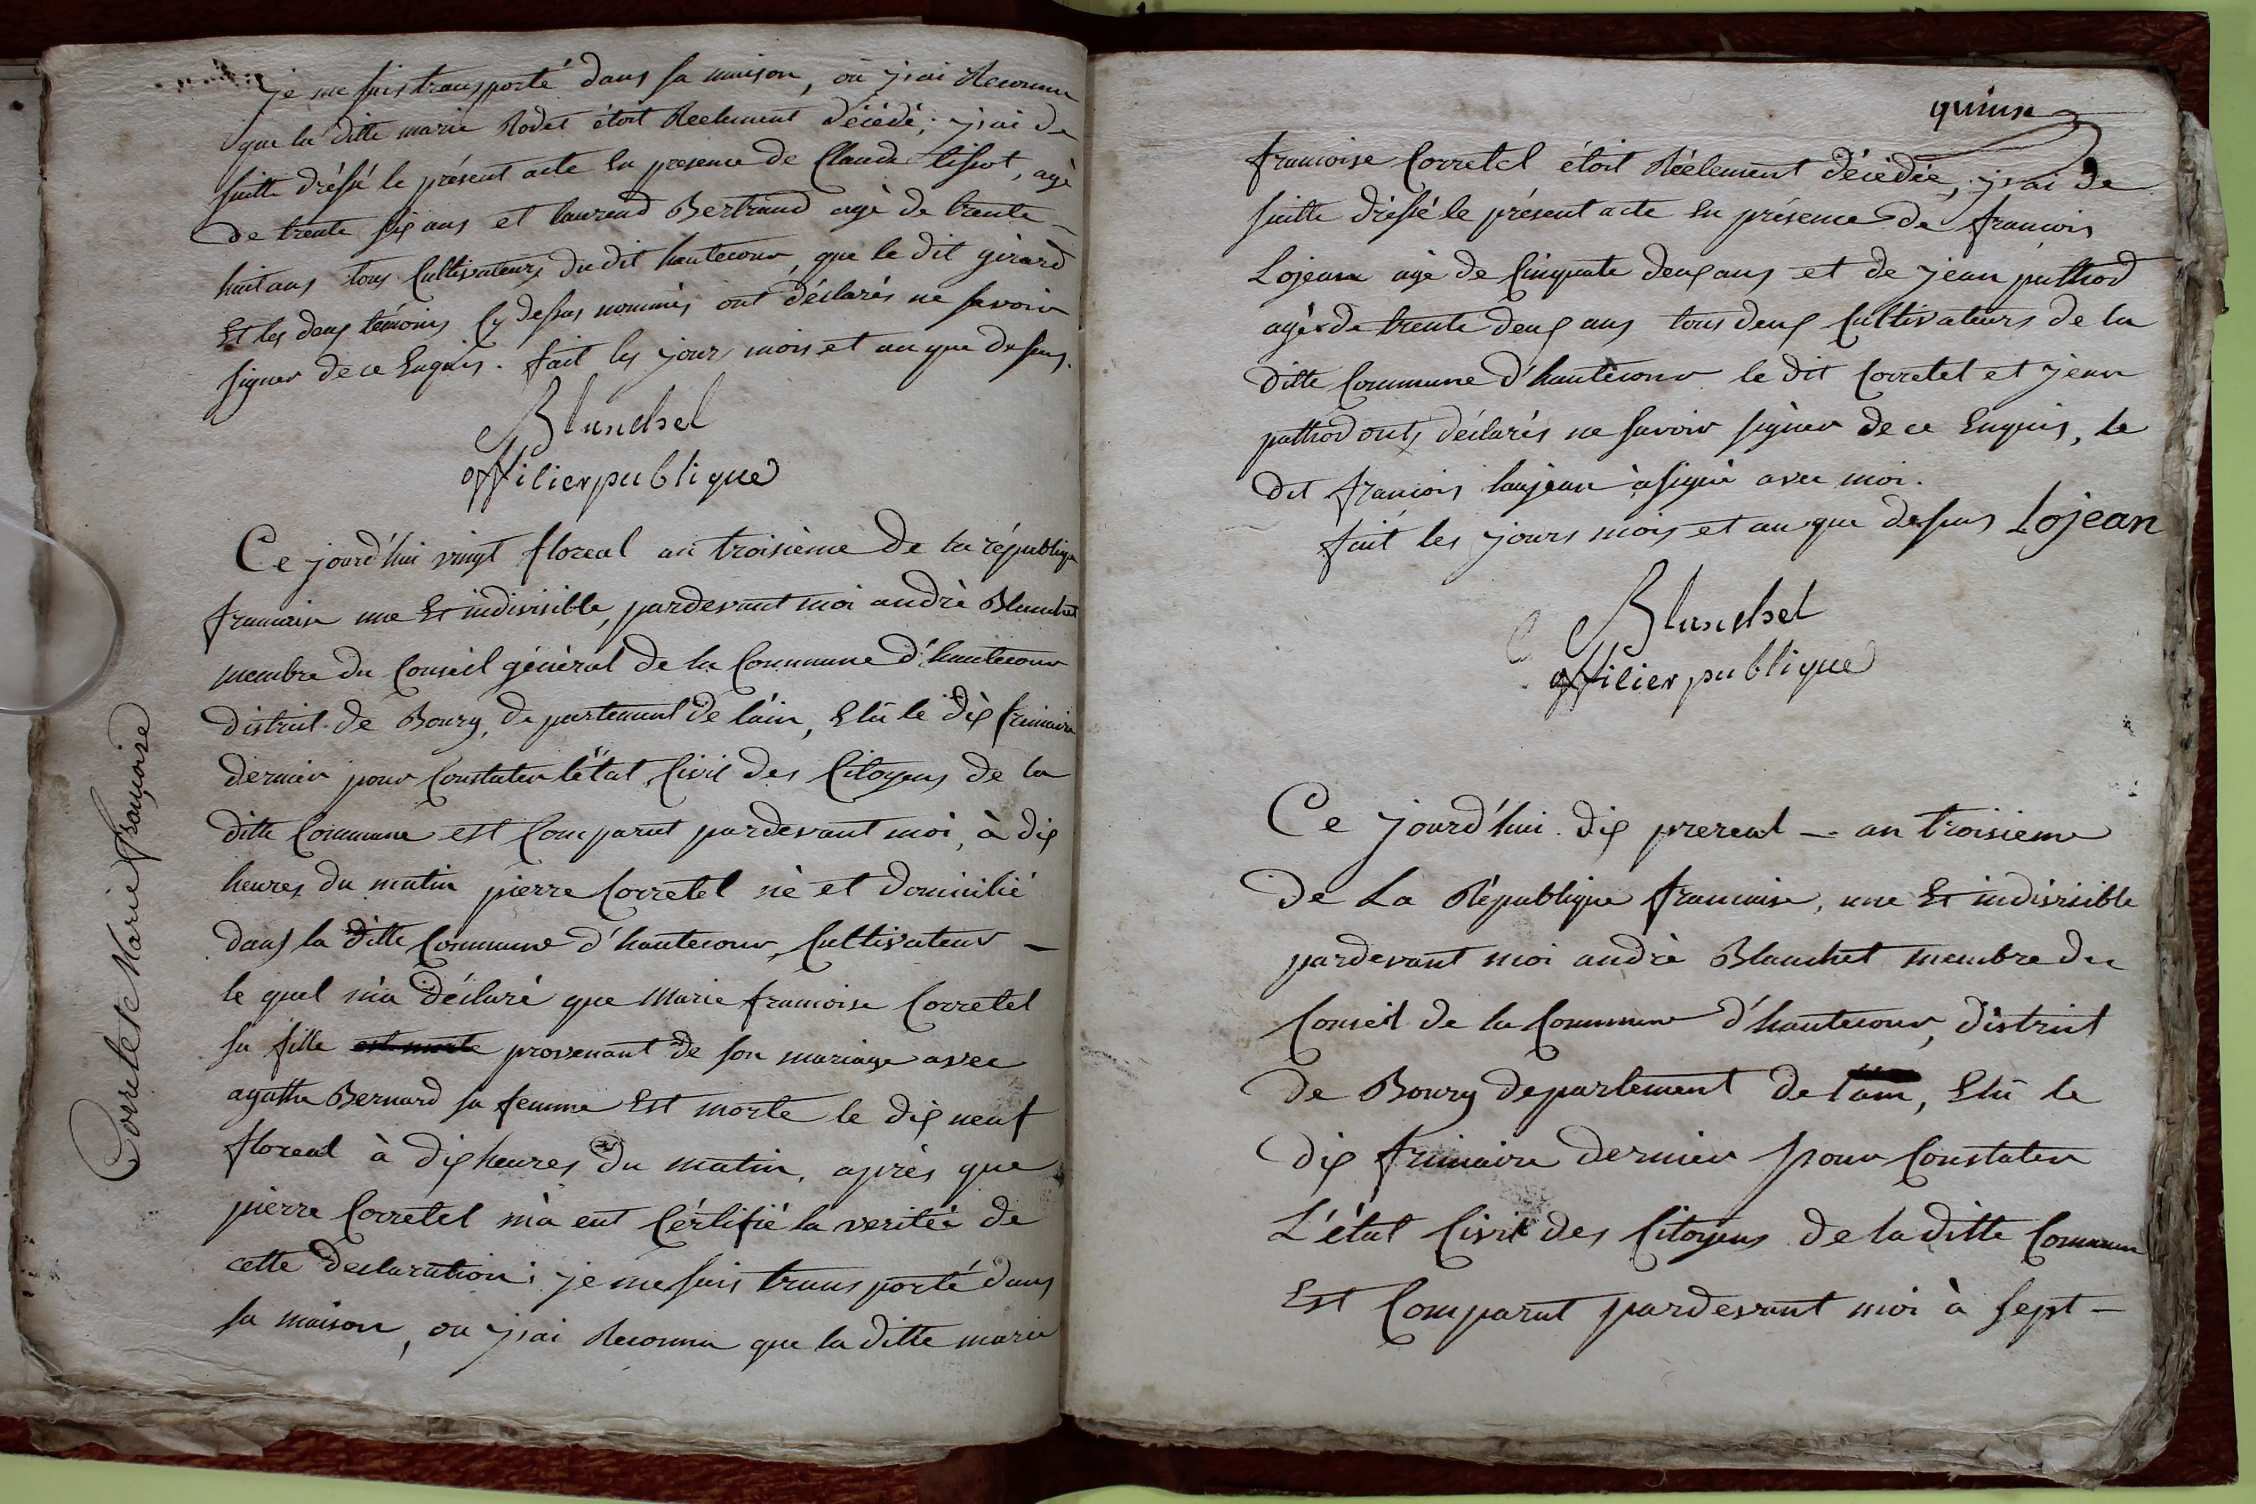 je me suis transporté dans sa maison, où j'ai Reconnu
que la ditte marie Rodet étoit Réelement décédé; j'ai de
suitte dréssé le présent acte En presence de Claude tissot, agé
de trente six ans et laurend Bertrand agé de trente
huit ans tous Cultivateurs du dit hautecour, que le dit girard
Et les deux témoins Cy dessus nommés ont déclarés ne savoir
signer de ce Enquis. fait les jours mois et an que dessus.
Blanchet
officier publique
Corretel Marie Françoise
Ce jourd'hui vingt floreal an troisième de la république
francaise une Et indivisible, pardevant moi andrè Blanchet
membre du Conseil général de la Commune d'hautecour
district de Bourg, departement de l'ain, Elû le dix frimaire
dernier pour Constater l'état Civil des Citoyens de la
ditte Commune est Comparut pardevant moi, à dix
heures du matin pierre Corretel né et domicilié
dans la ditte Commune d'hautecour, Cultivateur —
le quel m'a déclaré que Marie francoise Corretel
sa fille est morte provenant de son mariage avec
agathe Bernard sa femme Est morte le dix neuf
floreal à dix heures du matin, après que
pierre Corretel m'à eut Cértifié la veritée de
cette declaration; je me suis transporté dans
sa maison, ou j'ai Reconnu que la ditte marie
quinse
francoise Corretel étoit Réelement décédée, j'ai de
suitte dréssé le présent acte En présence de francois
Lojean agé de Cinquate deux ans et de jean puthod
agé de trente deux ans tous deux Cultivateurs de la
ditte Commune d'hautecour le dit Corretel et jean
puthod onts déclarés ne savoir signer de ce Enquis, le
dit françois laujean à signé avec moi.
fait les jours mois et an que dessus Lojean
Blanchet
officier publique
Ce jourd'hui dix prereal — an troisieme
de La République francaise, une Et indivisible
pardevant moi andrè Blanchet membre du
Conseil de la Commune d'hautecour, district
de Bourg departement de l'ain, Elû le
dix frimaire dernier pour Constater
L'état Civil des Citoyens de la ditte Commune
Est Comparut pardevant moi à sept —